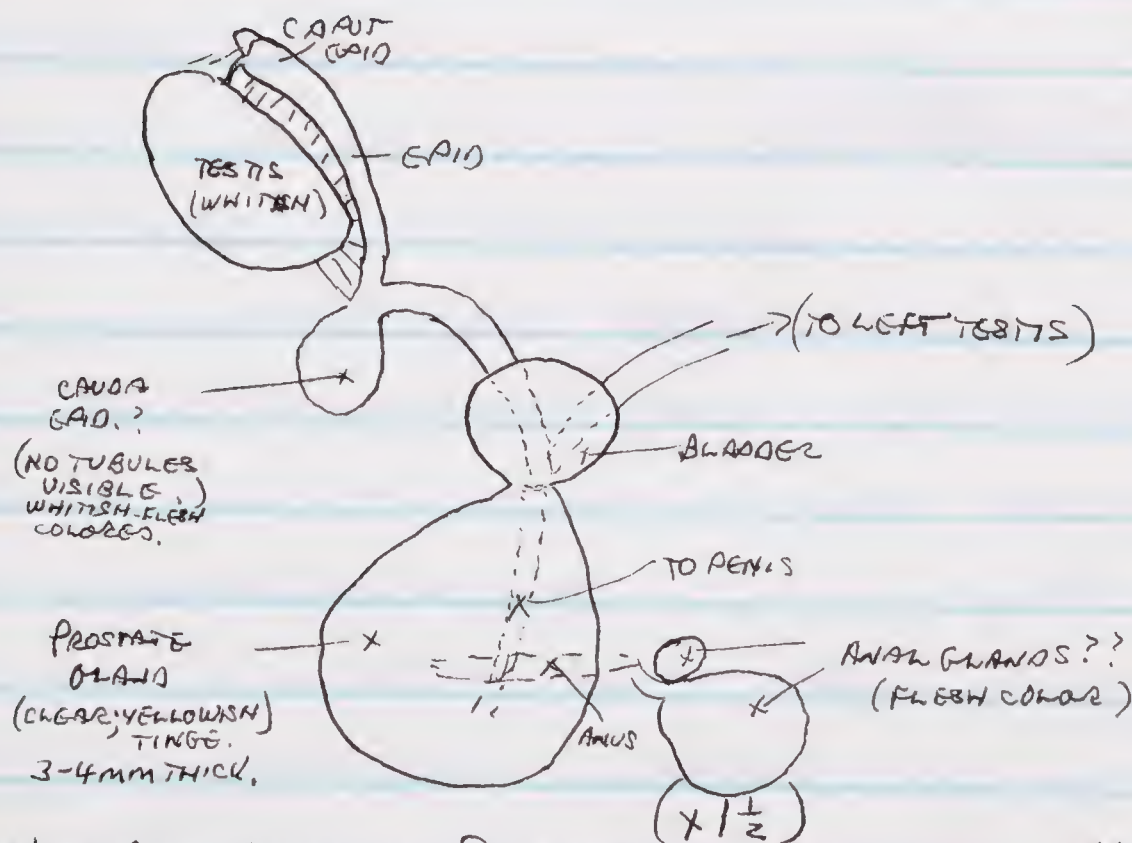 CAPUT
EPID
EPID
TESTIS
(WHITISH)
>(TO LEFT TESTIS)
CAUDA
EPID.?
(NO TUBULES
VISIBLE.)
WHITISH-FLESH
COLORED.
BLADDER
TO PENIS
PROSTATE
GLAND
(CLEAR; YELLOWISH)
TINGE.
3-4MM THICK.
ANAL GLANDS??
(FLESH COLOR)
ANUS
(X 1 1/2)